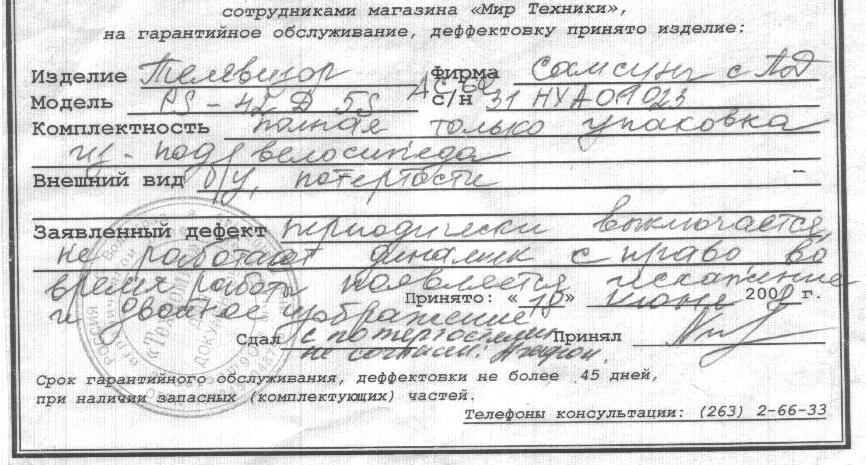 сотрудниками магазина «Мир Техники»,
на гарантийное обслуживание, деффектовку принято изделие:
Изделие Телевизор Фирма Самсунг с ПД
Модель PS-42 D 5S с/н 31 HYA01023
Комплектность полная только упаковка
из-под велосипеда
Внешний вид б/у, потертости
Заявленный дефект периодически выключается,
не работает динамик с право во
время работы появляется искапление
и двойное изображение
Принято: «10» июня 2008 г.
Сдал с потертостями Принял
не согласен.
Срок гарантийного обслуживания, деффектовки не более 45 дней,
при наличии запасных (комплектующих) частей.
Телефоны консультации: (263) 2-66-33